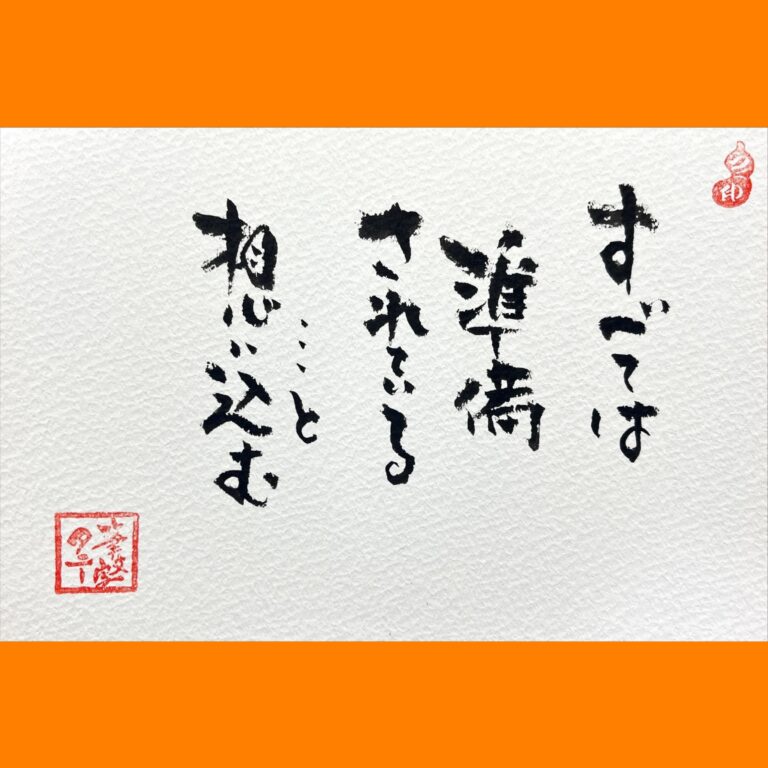 すべては
準備
されている
…と
想い込む